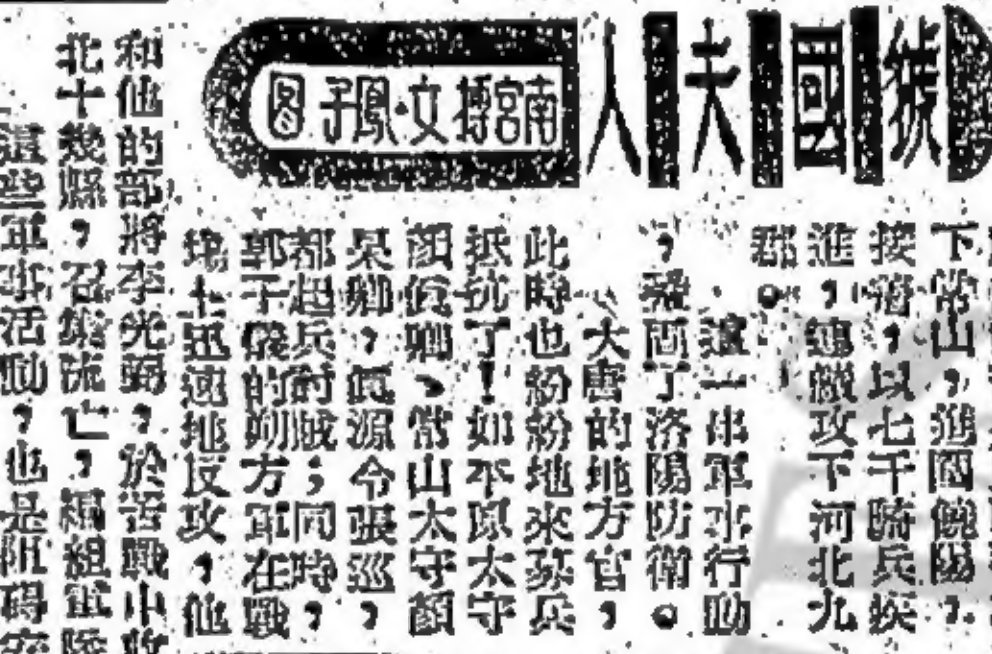 虢國夫人
南宮搏文·鳳子图
下常山,進圍饒陽,
接着,以七千騎兵疾
進,連續攻下河北九
郡。
這一串軍事行動
,鞏固了洛陽防衛。
大唐的地方官,
此時也紛紛地來募兵
抵抗了!如平原太守
顏眞卿、常山太守顏
杲卿,眞源令張巡,
都起兵討賊;同時,
郭子儀的朔方軍在戰
場上迅速地反攻,他
和他的部將李光弼,於苦戰中收
北十幾縣,召集流亡,編組軍隊
這些軍事活動,也是阻碍